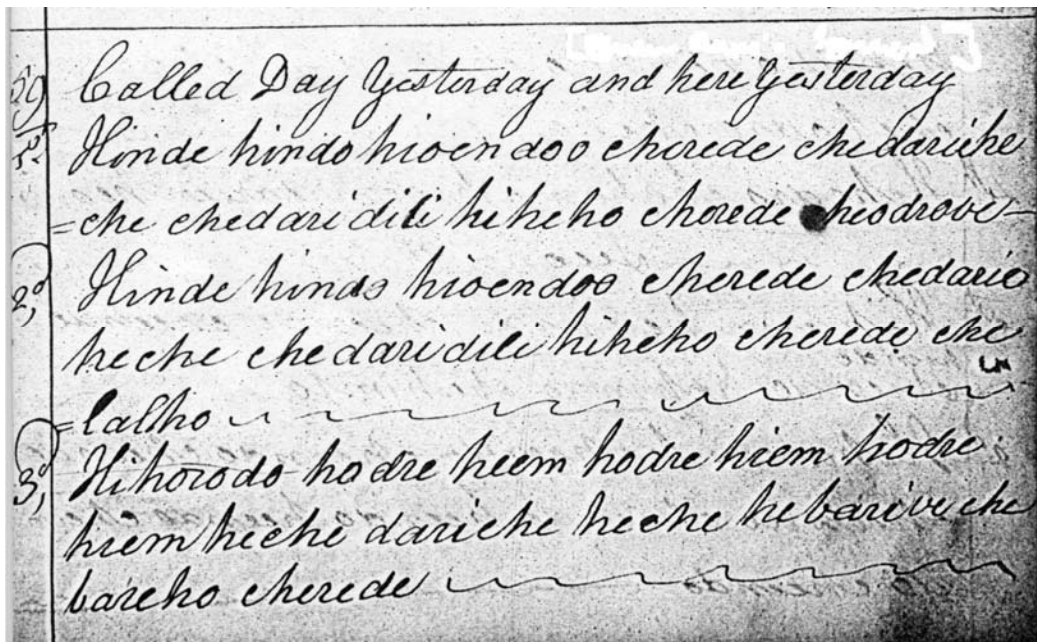 59 Called Day Yesterday and here Yesterday
1st Hinde hindo hioendoo cherede chedariche
=che chedaridili hiheho cherede cheodrove—
2d, Hinde hindo hioendoo cherede chedario
heche chedaridili hiheho cherede che
=lalho
3d, Hihorodo hodre heem hodre hiem hodre
hiem heche dariche heche hebariveche
bareho cherede